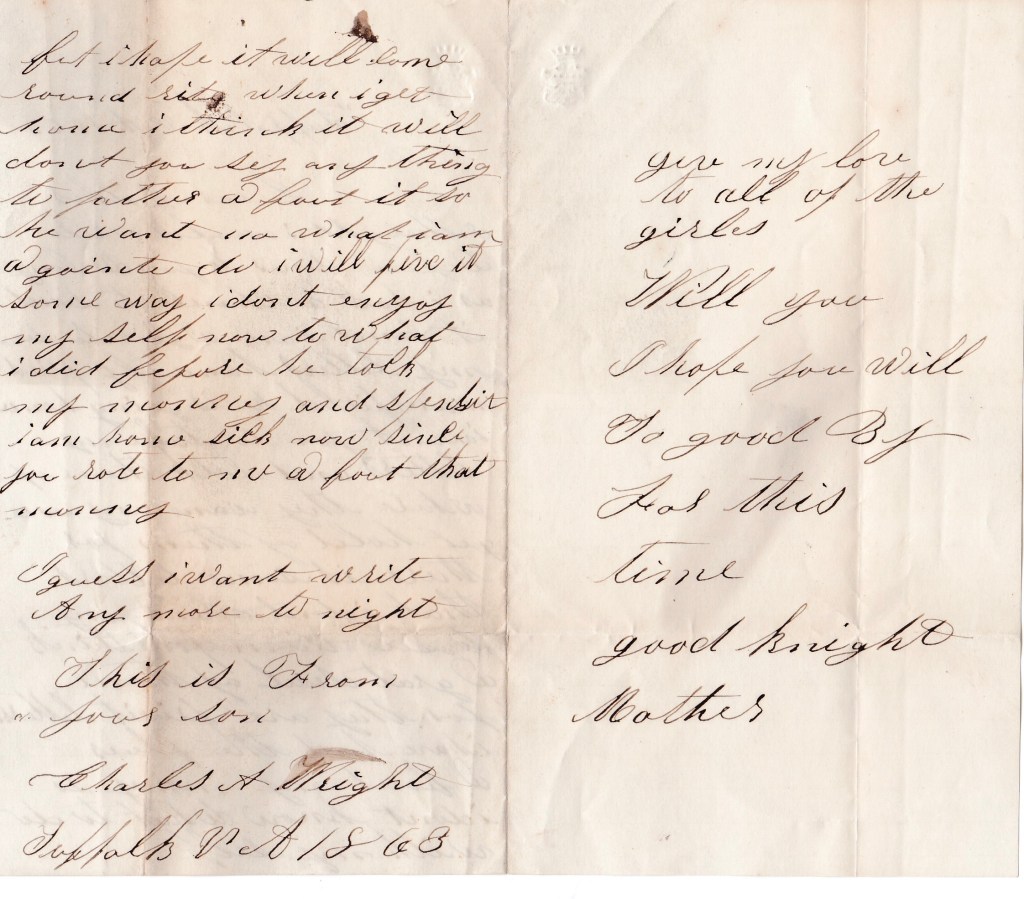 but i hope it will come
round rite when i get
home i think it will
dont you sey any thing
to father a bout it so
he want no what i am
a goin to do i will five it
some way i dont enyoy
my self now to what
i did before he tolk
my monney and spent it
i am home sick now since
you rote to me a bout that
monney
I guess i want write
Any more to night
This is From
your son
Charles A Wright
Suffolk VA 1863
give my love
to all of the
girles
Will you
I hope you will
So good By
For this
time
good knight
Mother